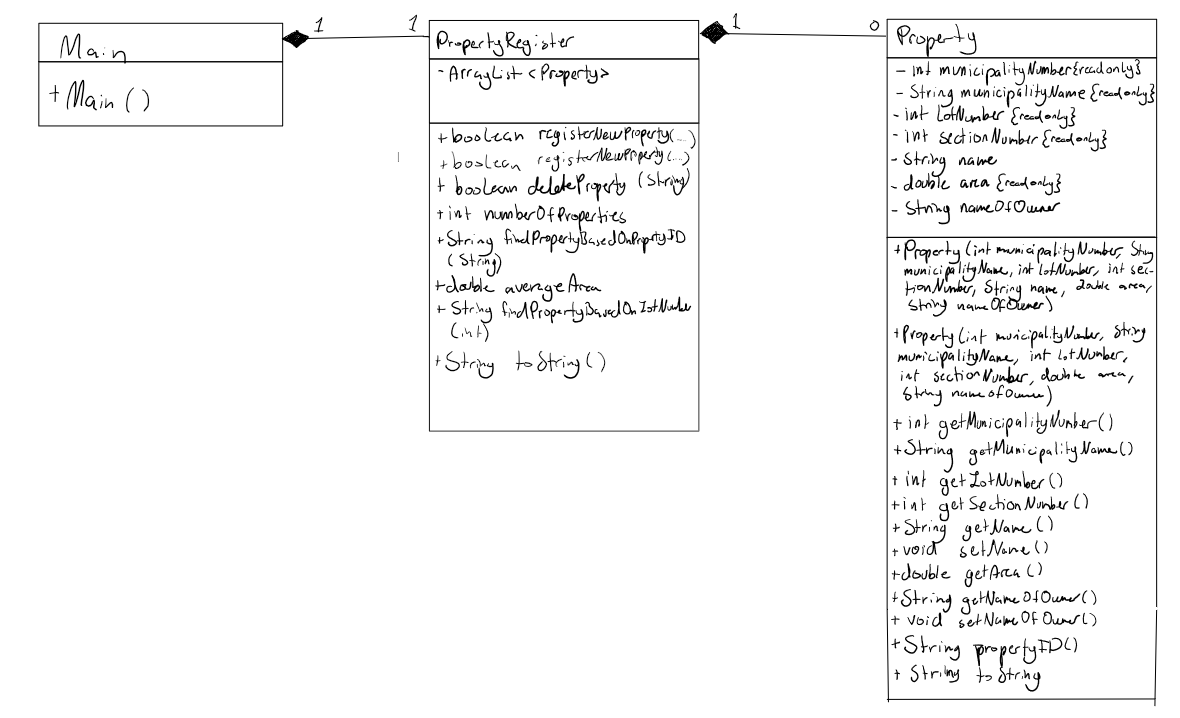 Main
+ Main ()
1
1
PropertyRegister
- ArrayList <Property>
+ boolean registerNewProperty(...)
+ boolean registerNewProperty(...)
+ boolean deleteProperty (String)
+ int numberOfProperties
+ String findPropertyBasedOnPropertyID
(String)
+ double averageArea
+ String findPropertyBasedOnLotNumber
(int)
+ String toString()
1
0
Property
- int municipalityNumber{readonly}
- String municipalityName {readonly}
- int LotNumber {readonly}
- int sectionNumber {readonly}
- String name
- double area {readonly}
- String nameOfOwner
+ Property (int municipalityNumber, String
municipalityName, int LotNumber, int sec-
tionNumber, String name, double area,
String nameOfOwner)
+ Property (int municipalityNumber, String
municipalityName, int LotNumber,
int sectionNumber, double area,
String nameOfOwner)
+ int getMunicipalityNumber()
+ String getMunicipalityName()
+ int getLotNumber()
+ int getSectionNumber()
+ String getName()
+ void setName()
+ double getArea()
+ String getNameOfOwner()
+ void setNameOfOwner()
+ String propertyID()
+ String toString